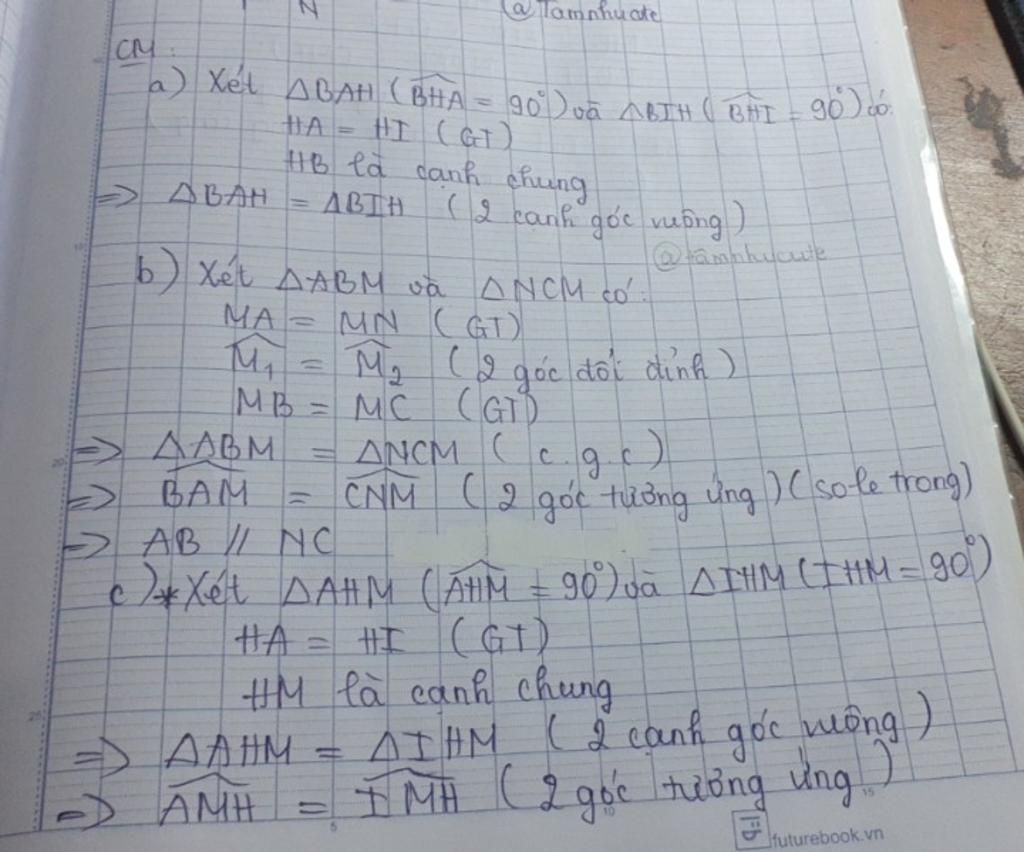 N
@Tamnhucute
CM:
a) Xét ΔBAH (BHA = 90°) và ΔBIH (BHI = 90°) có:
HA = HI (GT)
HB là cạnh chung
=> ΔBAH = ΔBIH (2 cạnh góc vuông)
@tamnhucute
b) Xét ΔABM và ΔNCM có:
MA = MN (GT)
M₁ = M₂ (2 góc đối đỉnh)
MB = MC (GT)
=> ΔABM = ΔNCM (c.g.c)
=> BAM = CNM (2 góc tương ứng) (so le trong)
=> AB // NC
c) * Xét ΔAHM (AHM = 90°) và ΔIHM (IHM = 90°)
HA = HI (GT)
HM là cạnh chung
=> ΔAHM = ΔIHM (2 cạnh góc vuông)
=> AMH = IMH (2 góc tương ứng)
5
10
15
20
25
futurebook.vn